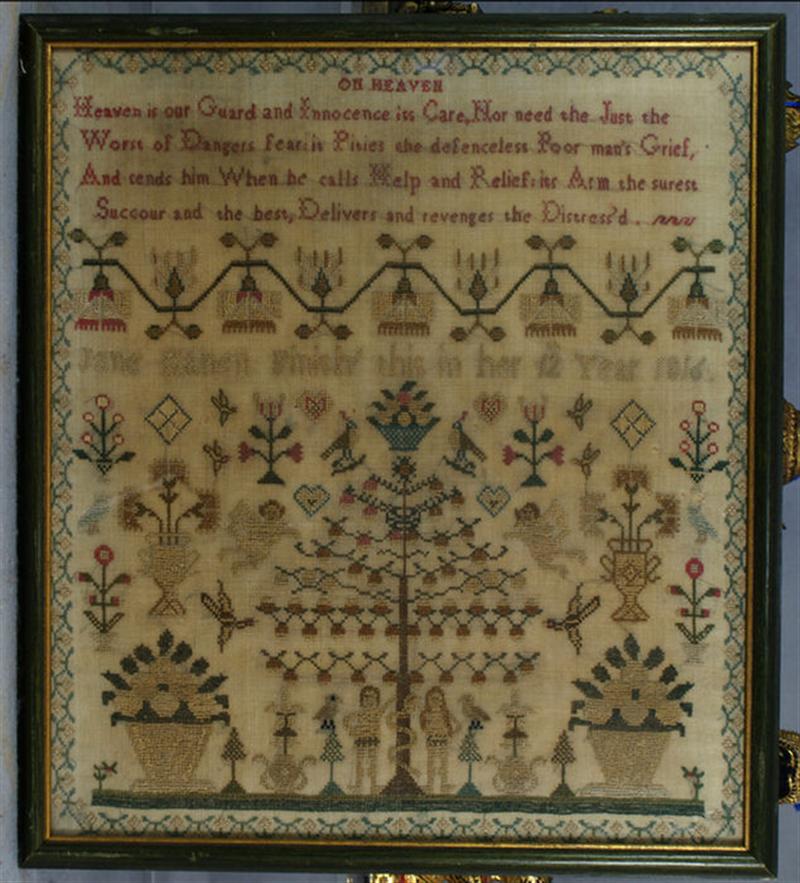 ON HEAVEN
Heaven is our Guard and Innocence its Care, Nor need the Just the
Worst of Dangers fear: it Pities the defenceless Poor man's Grief,
And sends him When he calls Help and Relief: its Arm the surest
Succour and the best, Delivers and revenges the Distress'd.
Jane Finish' this in her 12 Year 1816.